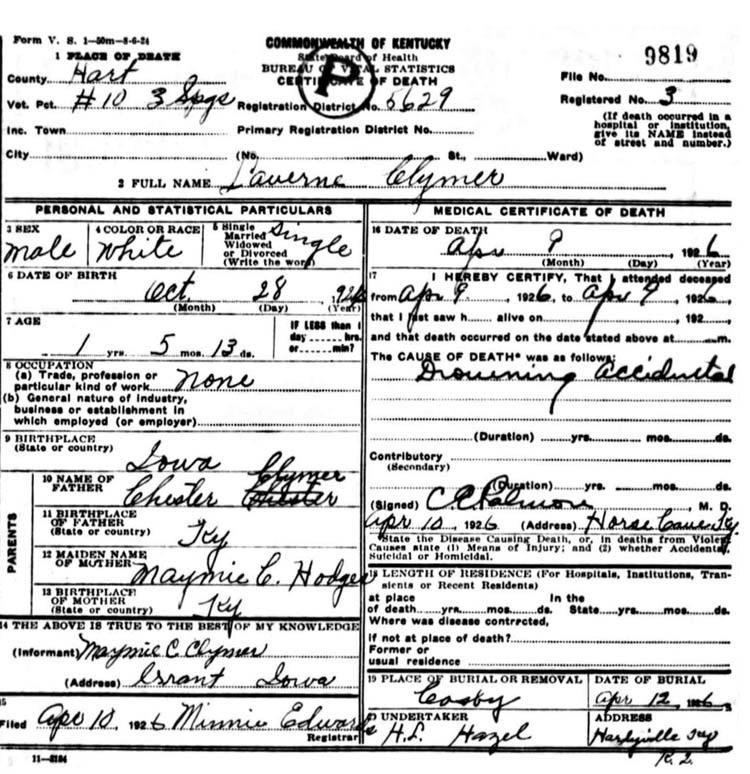 Form V. S. 1-50m-8-6-24
COMMONWEALTH OF KENTUCKY
State Board of Health
BUREAU OF VITAL STATISTICS
CERTIFICATE OF DEATH
P
9819
1 PLACE OF DEATH
County Hart
File No.
Vot. Pct. #10 3 Spgs
Registration District No. 5629
Registered No. 3
Inc. Town
Primary Registration District No.
(If death occurred in a hospital or institution, give its NAME instead of street and number.)
City (No. St., Ward)
2 FULL NAME Laverne Clymer
PERSONAL AND STATISTICAL PARTICULARS
3 SEX Male
4 COLOR OR RACE White
5 Single Married Widowed or Divorced (Write the word) Single
6 DATE OF BIRTH
Oct 28, 192
(Month) (Day) (Year)
7 AGE
1 yrs. 5 mos. 13 ds.
IF LESS than 1 day hrs. or min?
8 OCCUPATION
(a) Trade, profession or particular kind of work None
(b) General nature of industry, business or establishment in which employed (or employer)
9 BIRTHPLACE
(State or country) Iowa
PARENTS
10 NAME OF FATHER Chester Clymer
11 BIRTHPLACE OF FATHER
(State or country) Ky
12 MAIDEN NAME OF MOTHER Maymie C. Hodges
13 BIRTHPLACE OF MOTHER
(State or country) Ky
14 THE ABOVE IS TRUE TO THE BEST OF MY KNOWLEDGE
(Informant) Maymie C Clymer
(Address) Iowa
15
Filed Apr 10 1926 Minnie Edwards
Registrar
11-3184
MEDICAL CERTIFICATE OF DEATH
16 DATE OF DEATH
Apr 9, 1926
(Month) (Day) (Year)
17 I HEREBY CERTIFY, That I attended deceased
from Apr 9, 1926, to Apr 9, 1926,
that I last saw h alive on, 192
and that death occurred on the date stated above at m.
The CAUSE OF DEATH* was as follows:
Drowning Accidental
(Duration) yrs. mos. ds.
Contributory
(Secondary)
(Duration) yrs. mos. ds.
(Signed) C C Palmore, M. D.
Apr 10, 1926 (Address) Horse Cave Ky.
*State the Disease Causing Death, or, in deaths from Violent Causes state (1) Means of Injury; and (2) whether Accidental, Suicidal or Homicidal.
18 LENGTH OF RESIDENCE (For Hospitals, Institutions, Transients or Recent Residents)
at place of death yrs. mos. ds. In the State yrs. mos. ds.
Where was disease contrected,
If not at place of death?
Former or usual residence
19 PLACE OF BURIAL OR REMOVAL
Cosby
DATE OF BURIAL
Apr 12, 1926
UNDERTAKER
H.L. Hazel
ADDRESS
Hardyville Ky
R. 2.